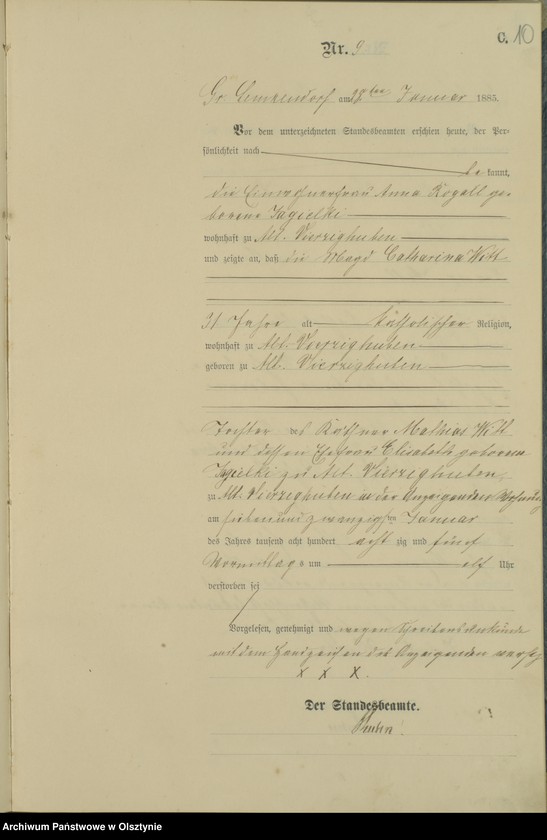 C. 10
Nr. 9
Gr. Lemkendorf am 28ten Januar 1885.
Vor dem unterzeichneten Standesbeamten erschien heute, der Per-
sönlichkeit nach
be kannt,
die Einwohnerfrau Anna Rogall ge-
borene Jagielki
wohnhaft zu Alt. Vierzighuben
und zeigte an, daß die Magd Catharina Witt
31 Jahre alt katholischer Religion,
wohnhaft zu Alt. Vierzighuben
geboren zu Alt. Vierzighuben
Tochter des Käthner Mathias Witt
und dessen Ehefrau Elisabeth geborene
Jagielki zu Alt. Vierzighuben
zu Alt. Vierzighuben in der Anzeigenden Wohnung
am siebenundzwanzigsten Januar
des Jahres tausend acht hundert acht zig und fünf
Vormittags um elf Uhr
verstorben sei
Vorgelesen, genehmigt und wegen Schreibensunkunde
mit dem Handzeichen des Anzeigenden versehen
X X X.
Der Standesbeamte.
Archiwum Państwowe w Olsztynie